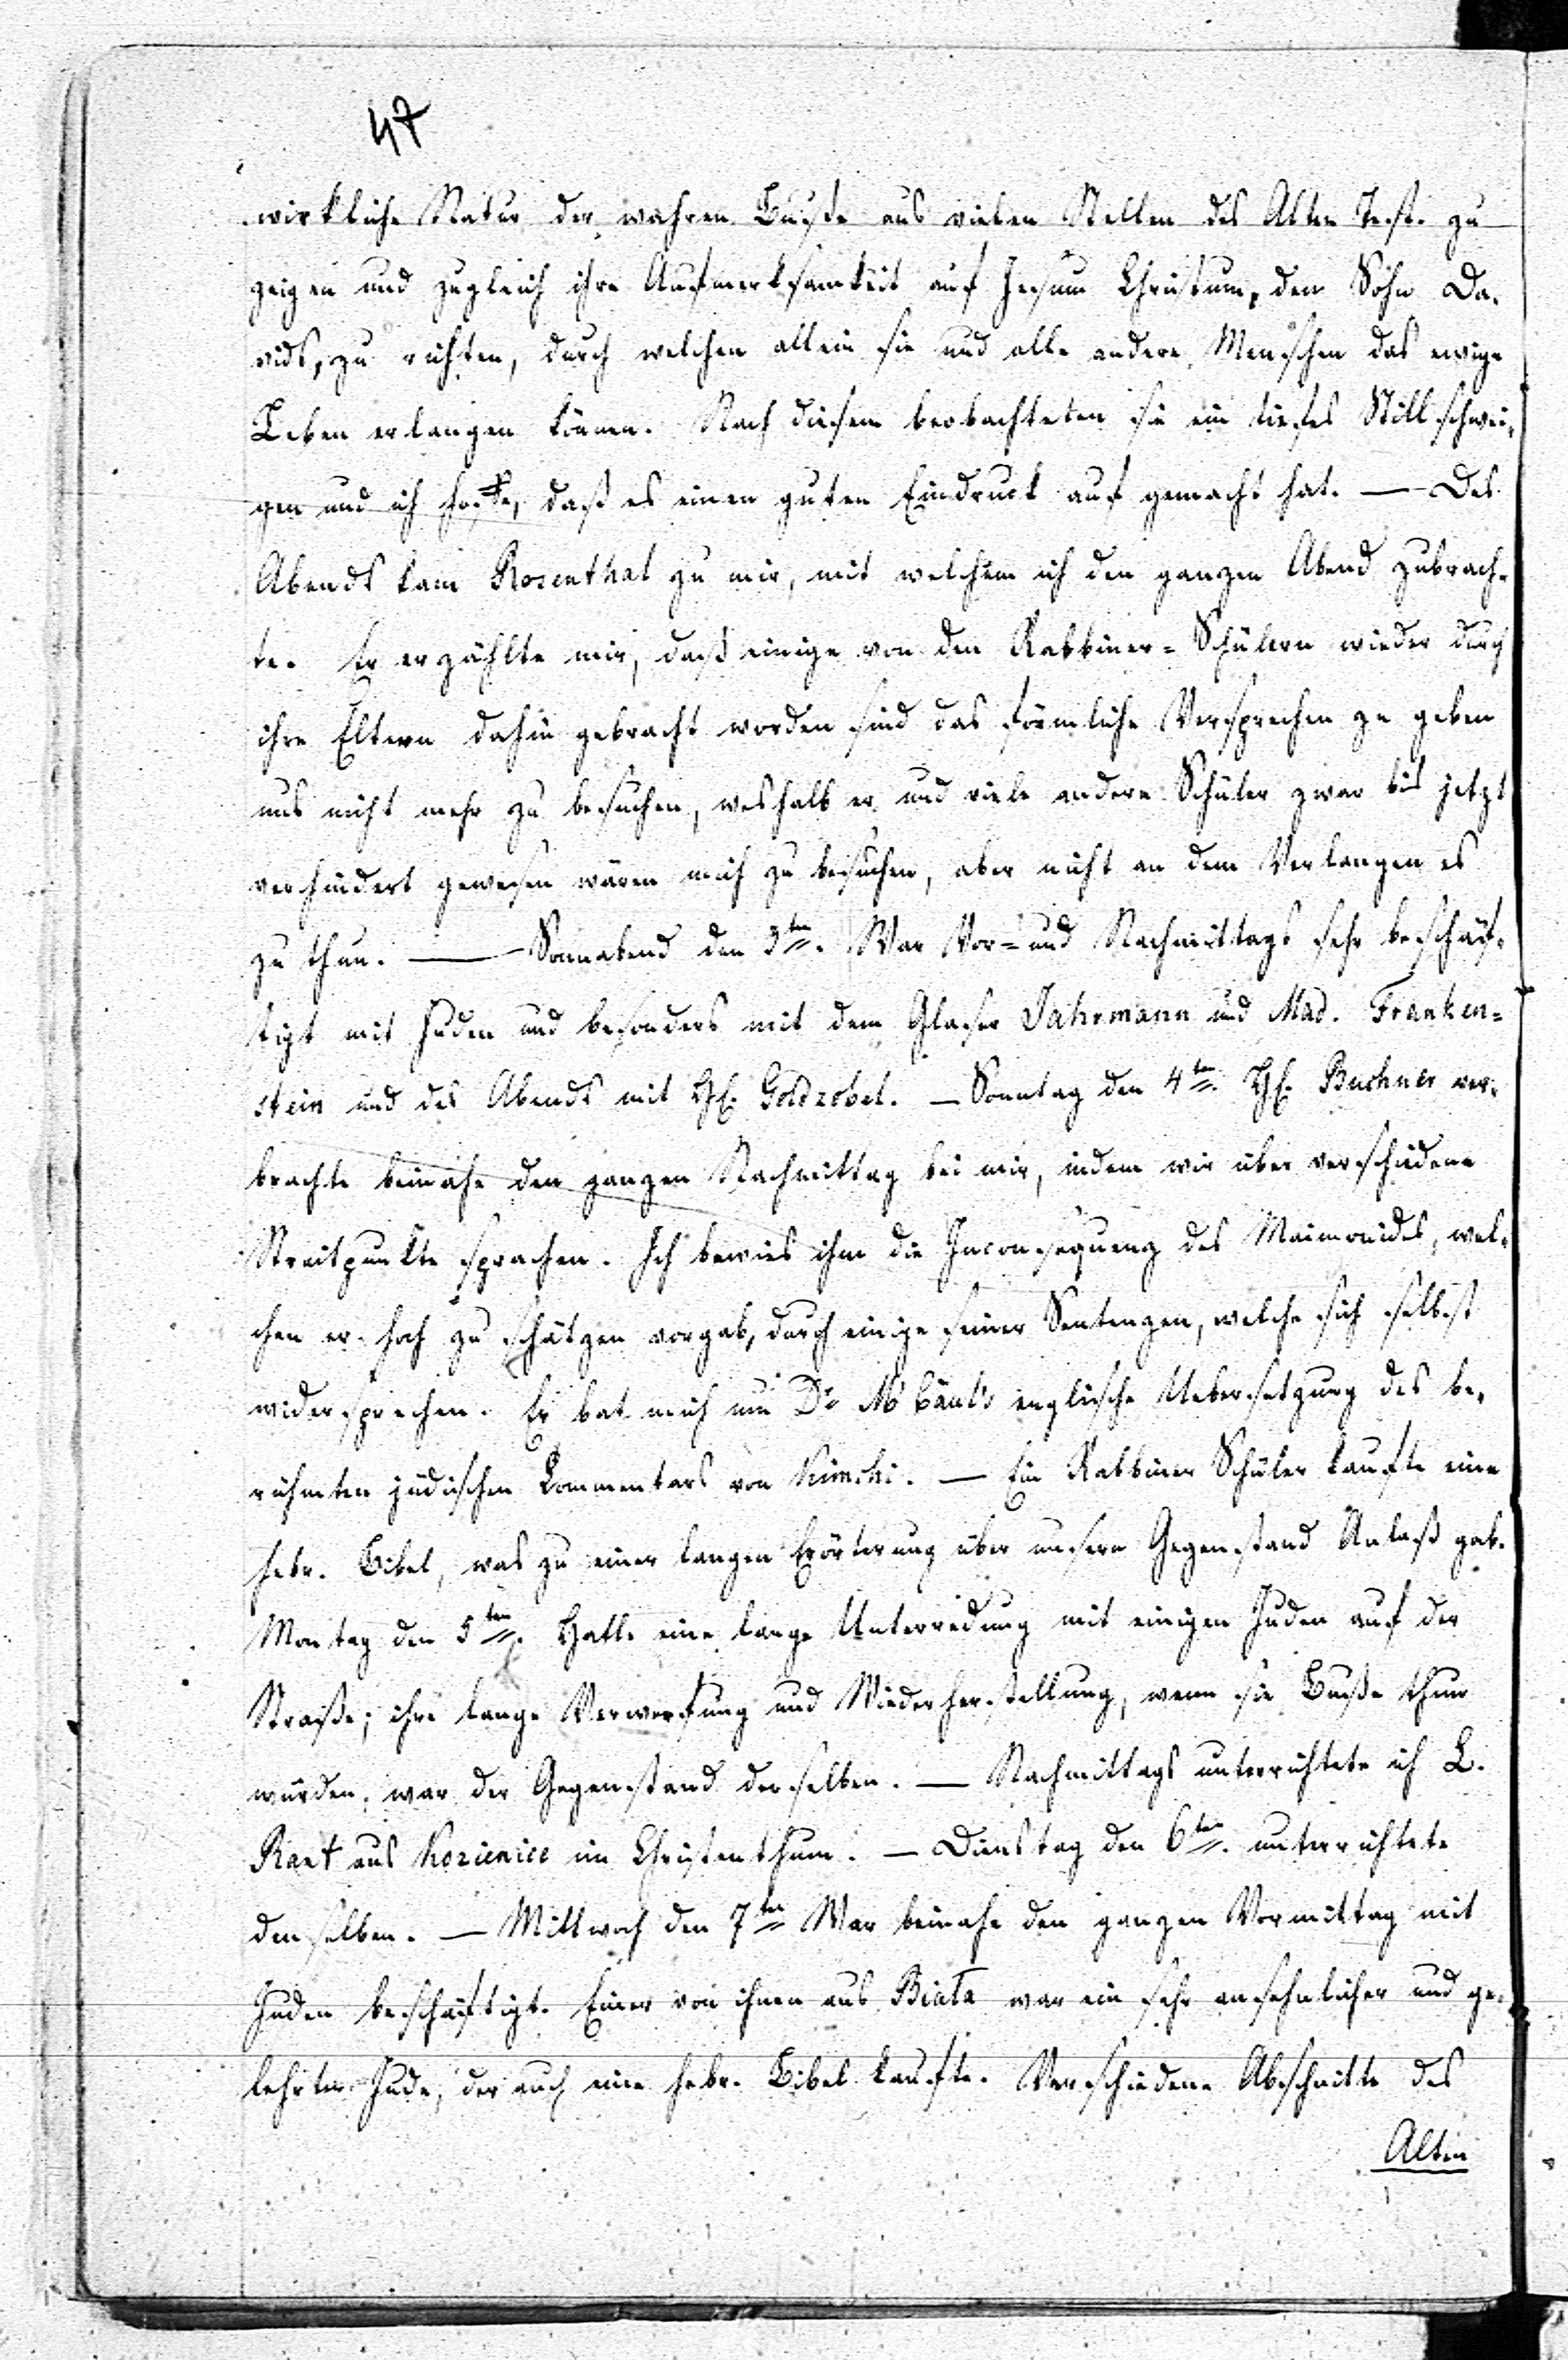 47
wirkliche Natur der wahren Buße aus vielen Stellen des Alten Test. zu
zeigen und zugleich ihre Aufmerksamkeit auf Jesum Christum, den Sohn Da-
vids, zu richten, durch welchen allein sie und alle andere Menschen das ewige
Leben erlangen können. Nach diesem beobachteten sie ein tiefes Stillschwei-
gen und ich hoffe, daß es einen guten Eindruck auf gemacht hat. — Des
Abends kam Rosenthal zu mir, mit welchem ich den ganzen Abend zubrach-
te. Er erzählte mir, daß einige von den Rabbiner-Schülern wieder durch
ihre Eltern dahin gebracht worden sind das förmliche Versprechen zu geben
uns nicht mehr zu besuchen, weshalb er und viele andere Schüler zwar bis jetzt
verhindert gewesen wären mich zu besuchen, aber nicht an dem Verlangen es
zu thun. — Sonnabend den 3ten. War Vor- und Nachmittags sehr beschäf-
tigt mit Juden und besonders mit dem Glaser Jahrmann und Mad. Franken-
stein und des Abends mit H. Goldzobel. — Sonntag den 4ten. H. Buchner ver-
brachte beinahe den ganzen Nachmittag bei mir, indem wir über verschiedene
Streitpunkte sprachen. Ich bewies ihm die Inconsequenz des Maimonides, wel-
chen er hoch zu schätzen vorgab, durch einige seiner Sentenzen, welche sich selbst
widersprechen. Er bat mich um Dr McCaul's englische Uebersetzung des be-
rühmten jüdischen Commentars von Kimchi. — Ein Rabbiner Schüler kaufte eine
hebr. Bibel, was zu einer langen Erörterung über unsern Gegenstand Anlaß gab.
Montag den 5ten. Hatte eine lange Unterredung mit einigen Juden auf der
Straße; ihre lange Verwerfung und Wiederherstellung, wenn sie Buße thun
würden, war der Gegenstand derselben. — Nachmittags unterrichtete ich L.
Rant aus Kozienice im Christenthum. — Dienstag den 6ten. unterrichtete
denselben. — Mittwoch den 7ten War beinahe den ganzen Vormittag mit
Juden beschäftigt. Einer von ihnen aus Biała war ein sehr ansehnlicher und ge-
lehrter Jude, der auch eine hebr. Bibel kaufte. Verschiedene Abschnitte des
Alten